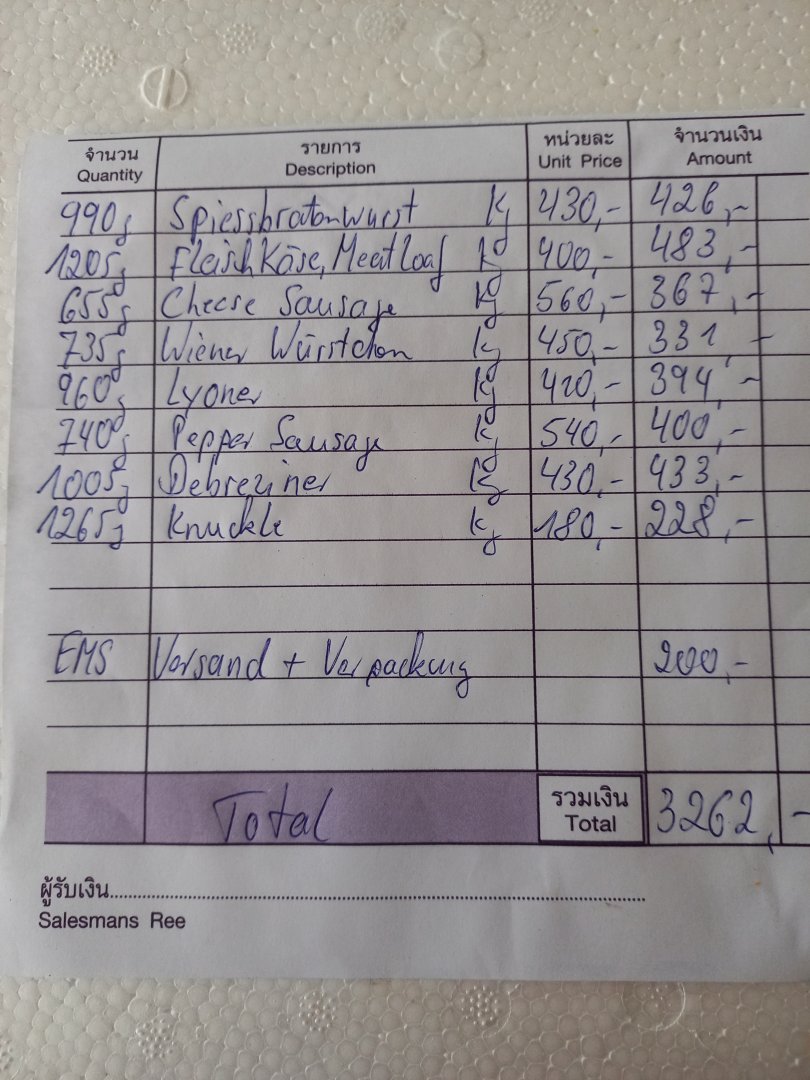 จำนวน รายการ หน่วยละ จำนวนเงิน
Quantity Description Unit Price Amount
990g Spiessbratenwurst Kg 430,- 426,-
1205g Fleischkäse, Meatloaf Kg 400,- 483,-
655g Cheese Sausage Kg 560,- 367,-
735g Wiener Würstchen Kg 450,- 331,-
960g Lyoner Kg 410,- 394,-
740g Pepper Sausage Kg 540,- 400,-
1005g Debreziner Kg 430,- 433,-
1265g Knuckle Kg 180,- 228,-
EMS Versand + Verpackung 200,-
Total รวมเงิน 3262,-
Total
ผู้รับเงิน
Salesmans Ree